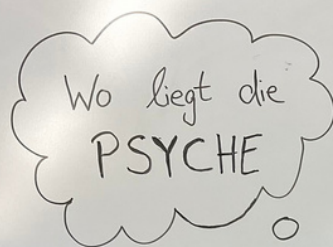 Wo liegt die
PSYCHE